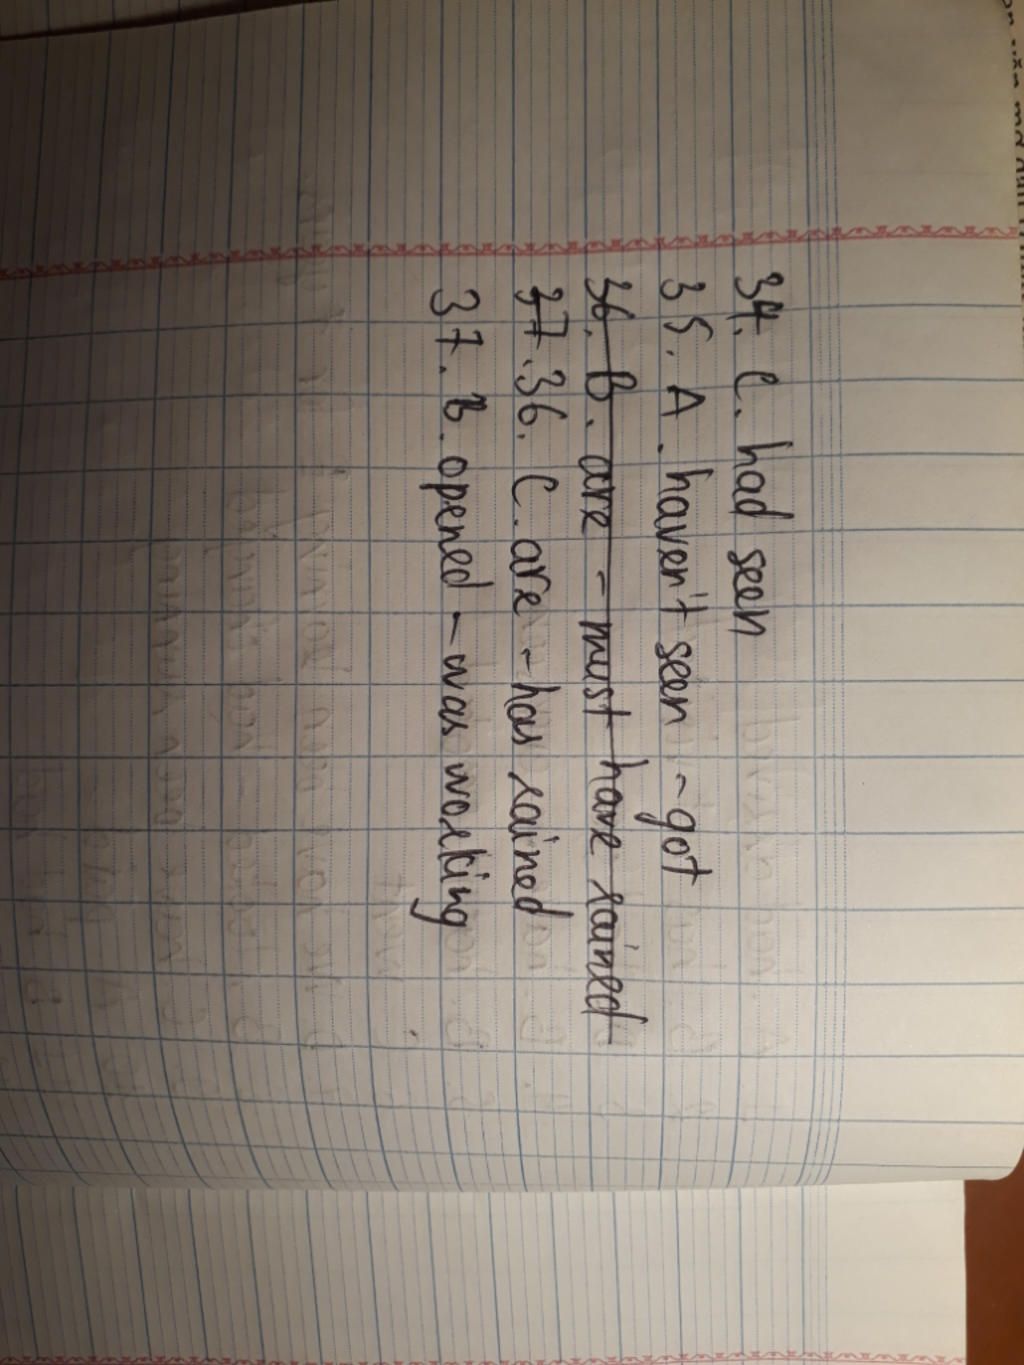 34. C. had seen
35. A. haven't seen - got
36. B. are - must have rained
37. 36. C. are - has rained
37. B. opened - was working